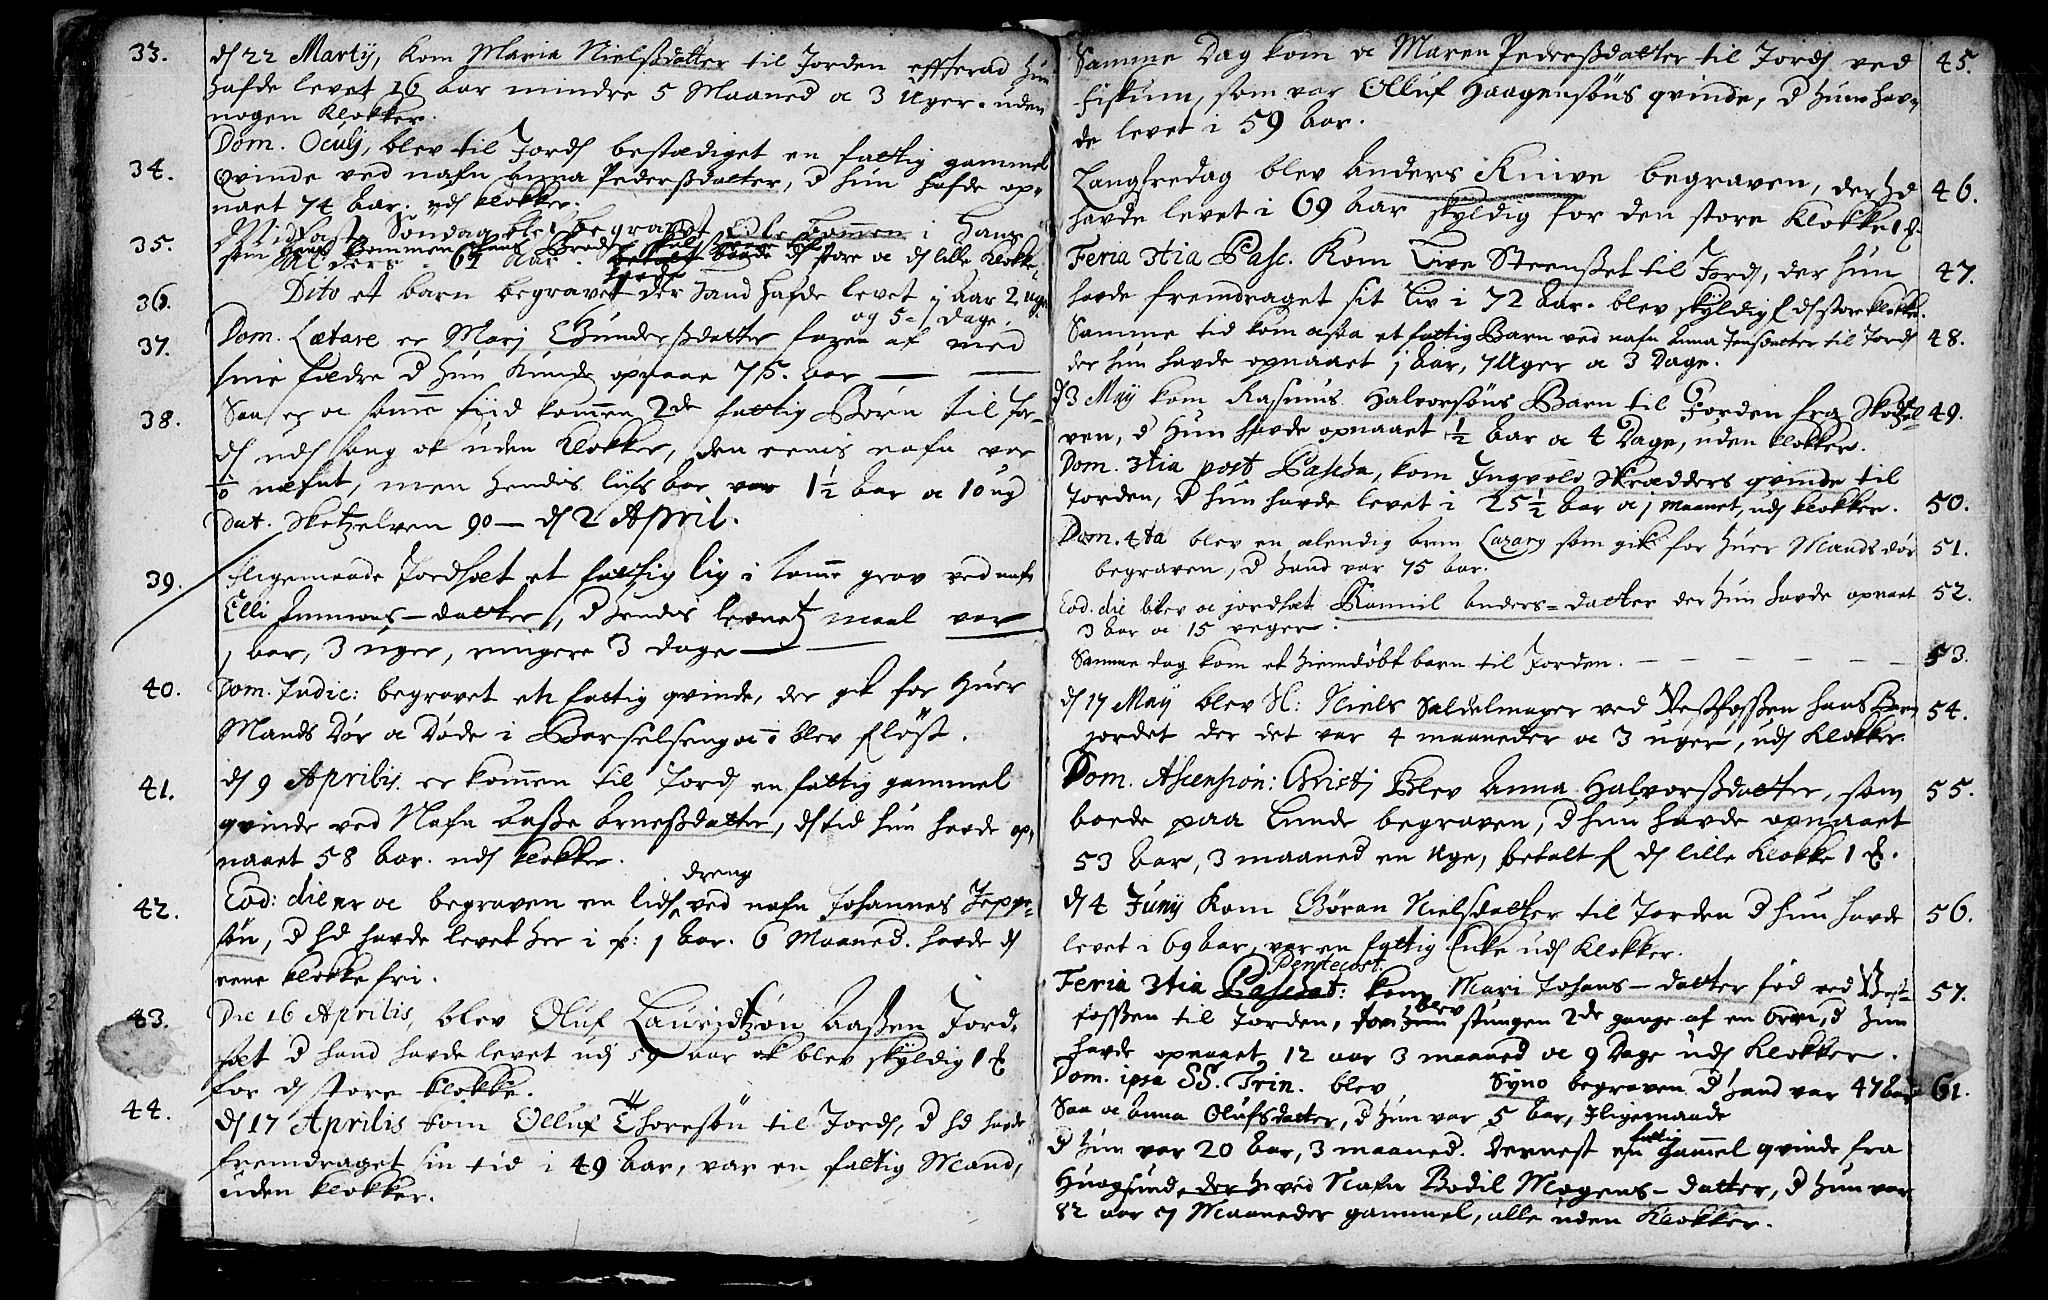 33. d 22 Martij, kom Maria Nielsßdatter til Jorden efterad hun
hafde levet 16 Aar mindre 5 Maaned oc 3 Uger. uden
nogen Klokker.
34. Dom. Oculj, blev til Jord bestædiget en fattig gammel
Qvinde ved nafn Anna Pedersßdatter, d hun hafde op-
naaet 74 Aar. ud klokker.
35. Midfaste Søndag blev begravet i Hans
Alders 61 Aar. d store oc d lille Klokke
36. Dito et barn begravet der hand hafde levet 1 aar 2 uger
og 5 dage.
37. Dom. Lætare er Marj Gundersßdatter faren af med
sine fædre d hun kunde opnaae 75. Aar —
38. Saa er oc samme tiid kommen 2de fattig Børn til Jor-
d ud sang ok uden Klokker, den eenis nafn var
næfnt, men hendis liifs Aar var 1½ Aar oc 10 ug
Dat. Sketzelven 90 — d 2 April.
39. Iligemaade Jordsat et fattig lig i samme grav ved nafn
Elli Immons-datter, d hendes levnets maal var
1 Aar, 3 uger, ringere 3 dage —
40. Dom. Judic: begravet en fattig qvinde, der gik for Huer
Mands Dør oc Døde i Barselseng oc blev
41. d 9 Aprilis. er kommen til Jord en fattig gammel
qvinde ved Nafn Aaße Arnesßdatter, d tid hun havde op-
naaet 58 Aar. ud klokker.
42. Eod: die er oc begraven en liden dreng ved nafn Johannes Jeppe-
søn, d hd havde levet her i 1 Aar. 6 Maaned. havde d
eene klokke fri.
43. Die 16 Aprilis, blev Oluf Lauridtzøn Aaßen Jord-
sat d hand havde levet ud 59 aar ok blev skyldig 1
for d store klokke.
44. d 17 Aprilis kom Olluf Thoresøn til Jord, d hd havde
fremdraget sin tid i 49 Aar, var en fattig Mand,
uden klokker.
Samme Dag kom oc Maren Pedersßdatter til Jord ved 45.
Fiskum, som var Olluf Haagensøns qvinde, d hun hav-
de levet i 59 Aar.
Langfredag blev Anders Knive begraven, der hd 46.
havde levet i 69 Aar skyldig for den store Klokke 1
Feria 3tia Pasc. Kom Live Steensßet til Jord, der hun 47.
havde fremdraget sit Liv i 72 Aar. blev skyldig f d store klokke.
Samme tid kom et fattig Barn ved nafn Anna Jensdatter til Jord 48.
der hun havde opnaaet 1 Aar, 7 Uger oc 3 Dage.
d 3 Maij kom Rasmus Halvorsøns Barn til Jorden fra Skotsel 49.
ven, d hun havde opnaaet ½ Aar oc 4 Dage, uden klokker.
Dom. 3tia post Pascha, kom Ingvold Skrædders qvinde til
Jorden, d hun havde levet i 25½ Aar oc 1 maanet, ud klokker. 50.
Dom. 4ta blev en elendig Lazarus som gik for huer Mands dør 51.
begraven, d hand var 75 Aar.
Eod. die blev oc jordsat Rannil Anders-datter der hun havde opnaaet 52.
3 Aar oc 15 ueger.
Samme dag kom et hiemdøbt barn til Jorden. — — — 53.
d 17 Maij blev H: Niels Sadelmager ved Vestfossen hans Barn 54.
jordet der det var 4 maaneder oc 3 uger, ud Klokker
Dom. Ascension: Christj Blev Anna Halvorsßdatter, som 55.
boede paa Lunde begraven, d hun havde opnaaet
53 Aar, 3 maaned en Uge, betalt f d lille Klokke 1
d 4 Junij Kom Gøran Nielsdatter til Jorden d hun havde 56.
levet i 69 Aar, var en fattig Enke ud Klokker.
Feria 3tia Pentecost. kom Mari Johans-datter fød ved Vest- 57.
fossen til Jorden, blev stungen 2de gange af en orm, d hun
havde opnaaet 12 aar 3 maaned oc 9 Dage ud Klokker.
Dom. ipsa SS. Trin. blev Syno begraven d hand var 47 Aar 61.
Saa oc Anna Olufsdatter, d hun var 5 Aar, Iligemaade
d hun var 20 Aar, 3 maaned. Dernest en fattig gammel qvinde fra
Haugsund, ved Nafn Bodil Mogens-datter, d hun var
82 aar 7 Maaneder gammel, alle uden Klokker.